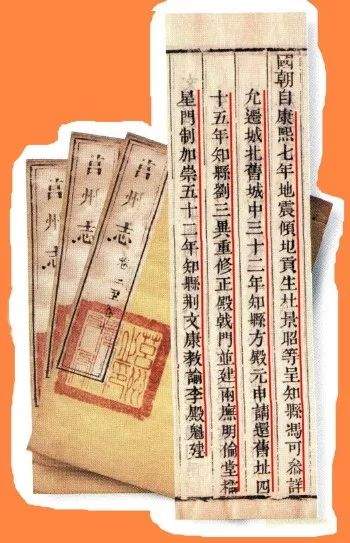 國朝自康熙七年地震傾圯貢生杜景昭等呈知縣馮可參詳
允遷城北舊城中三十二年知縣方殿元申請還舊址四
十五年知縣劉三異重修正殿戟門並建兩廡明倫堂櫺
星門制加崇五十二年知縣荆文康教諭李殿魁建
莒州志
莒州志
莒州志